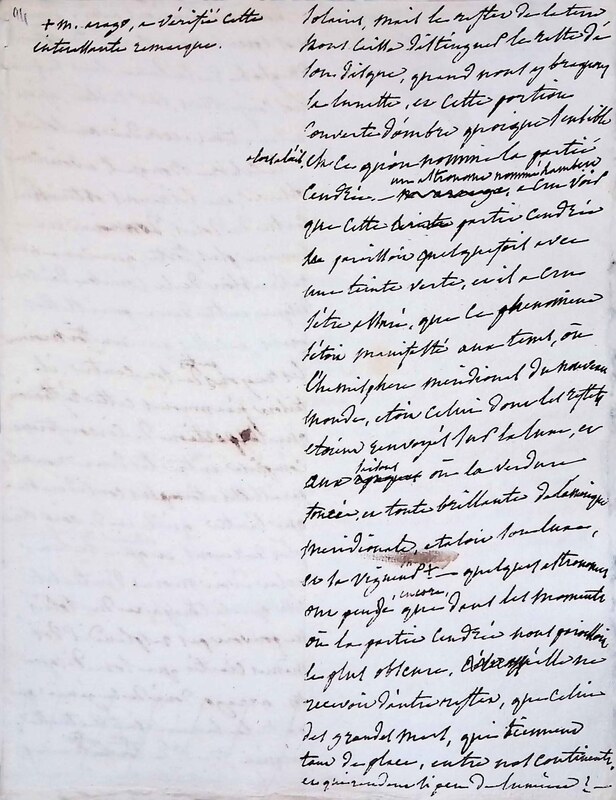 + m. arago, a vérifié cette
interessante remarque.
solaire, mais le reflet de la terre
nous laisse distinguer le reste de
son disque, quand nous y braquons
la lunette, et cette portion
couverte d'ombre quoique sensible
est ce qu'on nomme la partie
cendrée. — un astronome nommé Lambert
a cru voir
que cette partie cendrée
se paroissoit quelquefois avec
une teinte verte, et il a cru
s'être assuré, que ce phenomene
s'étoit manifesté aux tems, où
l'hemisphere meridional du nouveau
monde, étoit celui dont les reflets
etoient renvoyés sur la lune, et
aux où la verdure
foncée, et toute brillante de l'amérique
meridionale, etaloit son luxe,
et sa vigueur + — quelques astronomes
ont pensé encore, que dans les moments
où la partie cendrée nous paroissoit
le plus obscure, elle ne
recevoit d'autre reflet, que celui
des grandes mers, qui tiennent
tant de place, entre nos continents,
et qui rendent si peu de lumiere? —